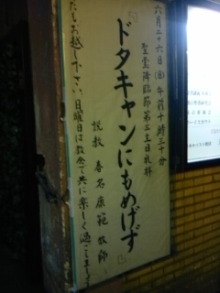 六月二十六日(日)午前十時三十分
聖霊降臨節第三主日礼拝
ドタキャンにもめげず
説教 春名康範牧師
だれでもお越し下さい。日曜日は教会で共に楽しく過ごしましょう